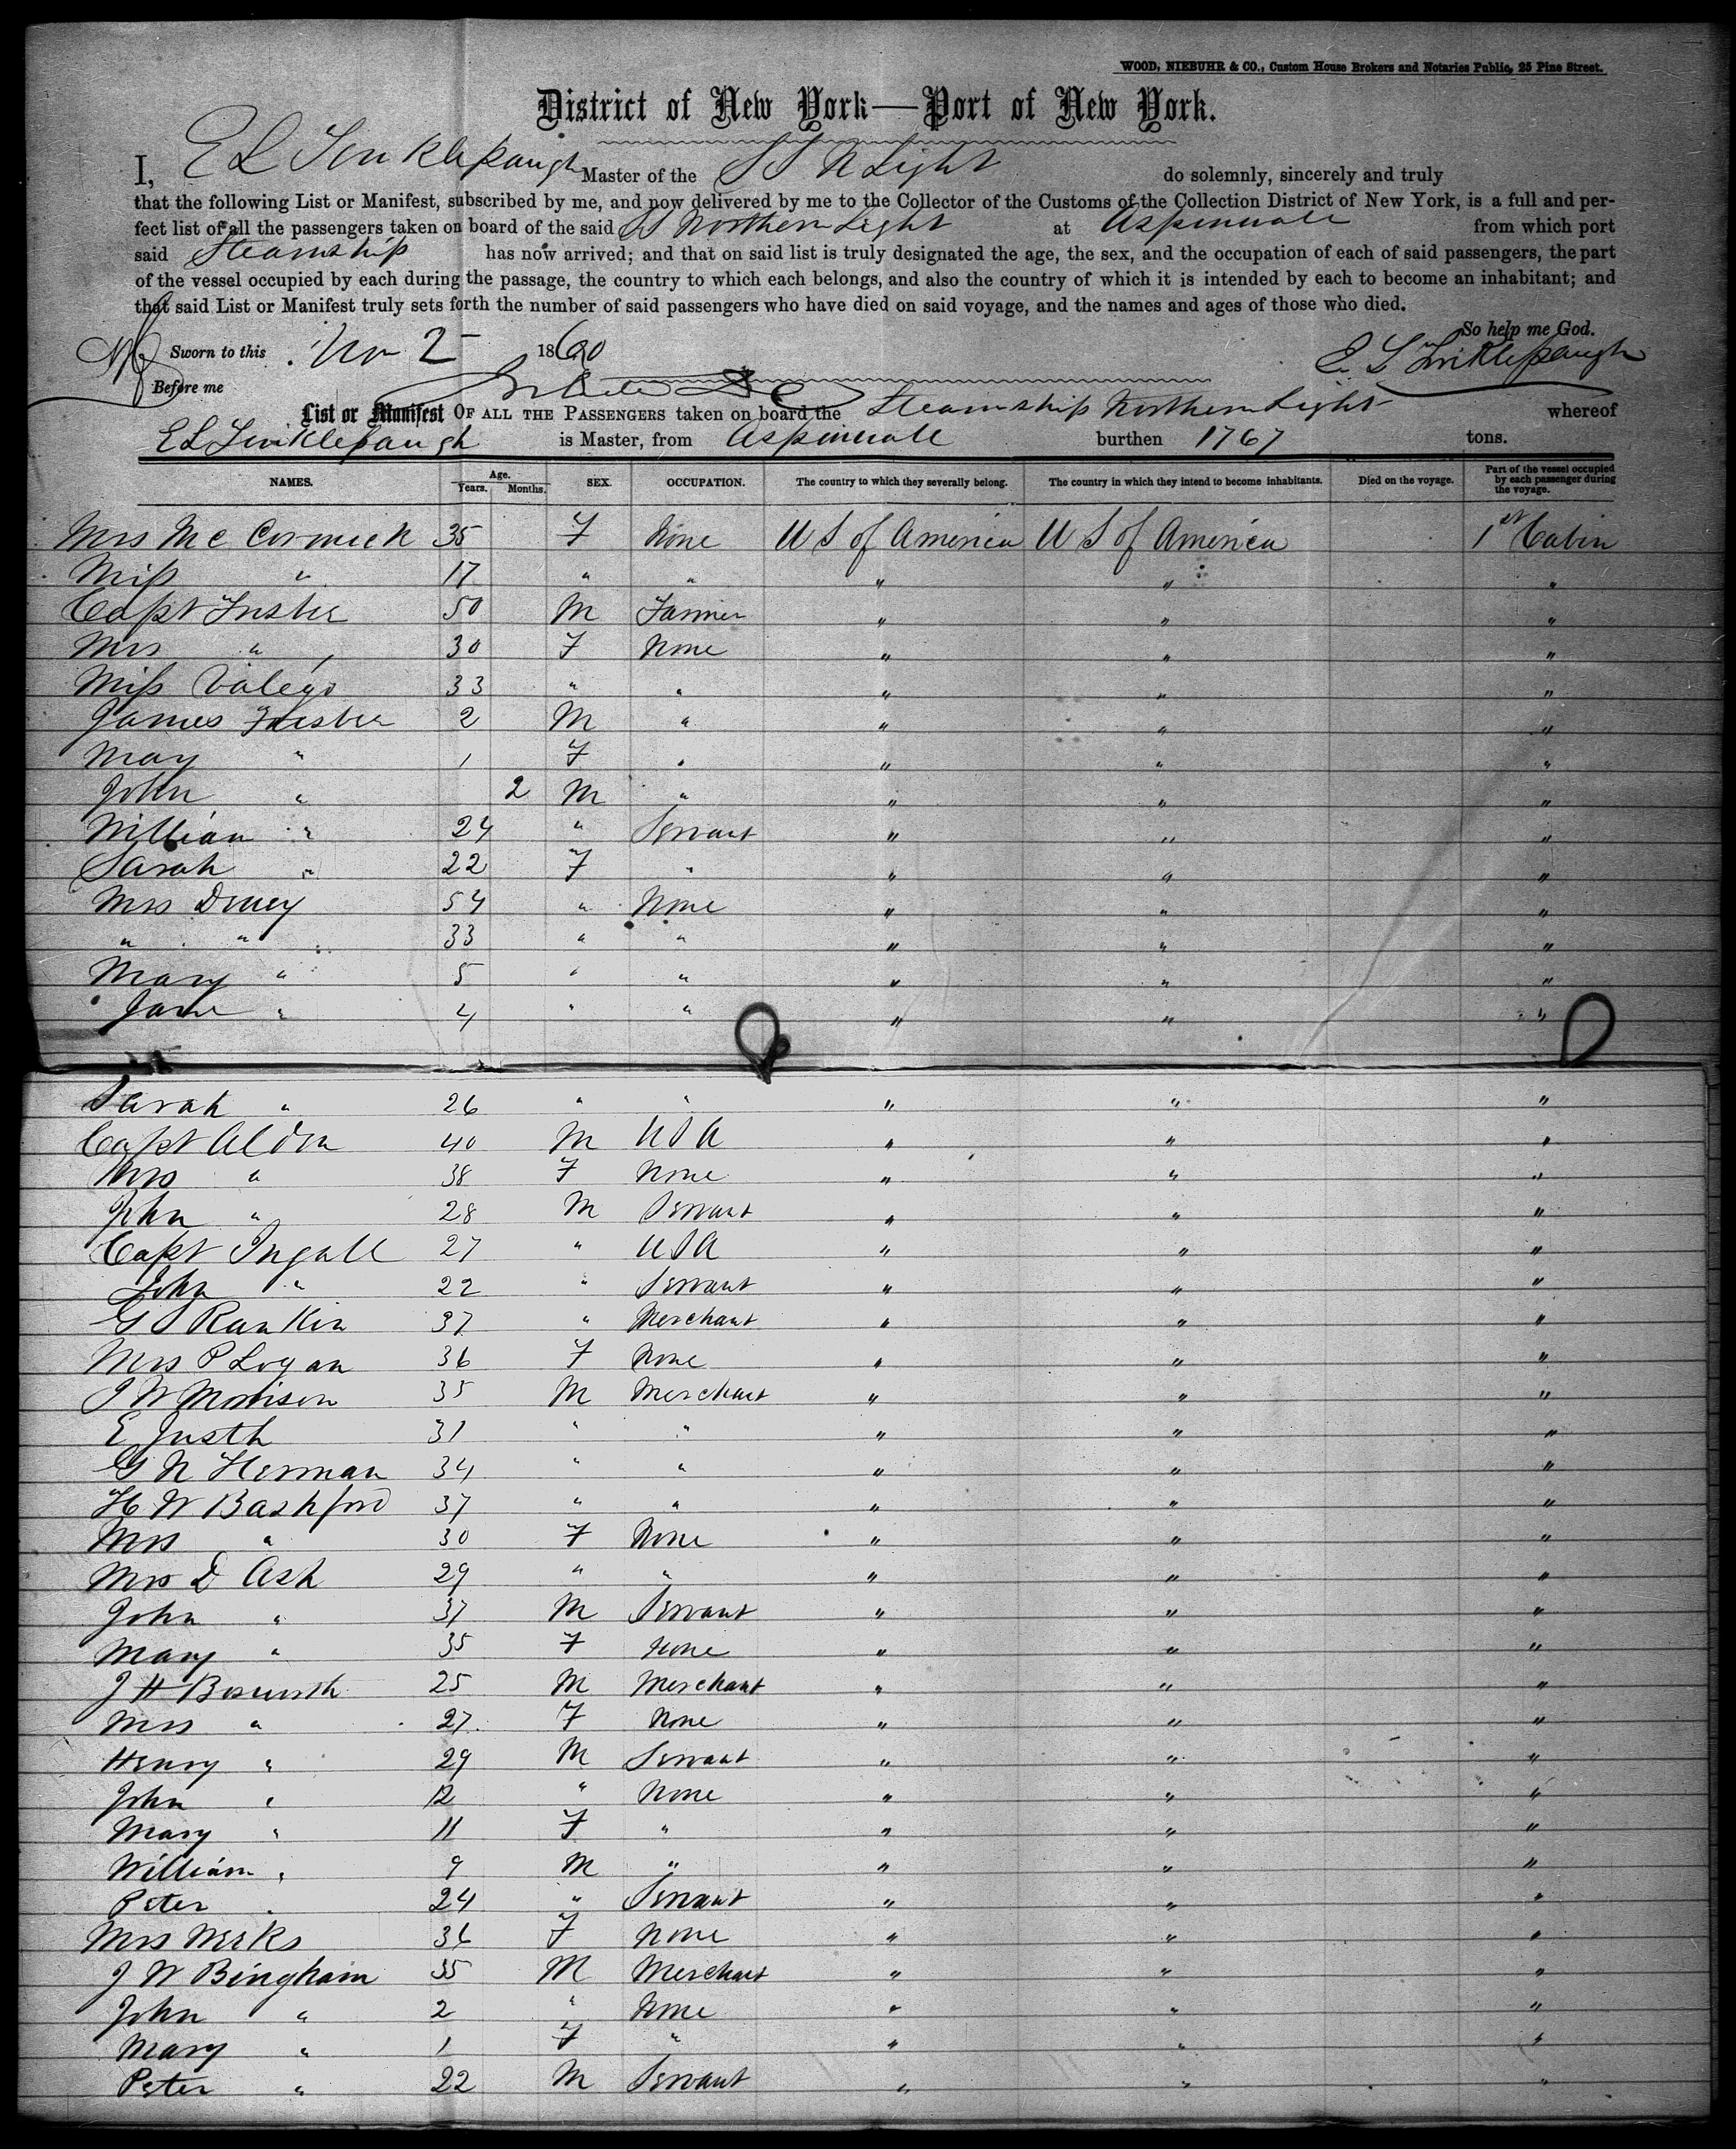 WOOD, NIEBUHR & CO., Custom House Brokers and Notaries Public, 25 Pine Street.
District of New York—Port of New York.
I, E L Tinklepaugh Master of the S S N Light do solemnly, sincerely and truly
that the following List or Manifest, subscribed by me, and now delivered by me to the Collector of the Customs of the Collection District of New York, is a full and per-
fect list of all the passengers taken on board of the said SS Northern Light at Aspinwall from which port
said Steamship has now arrived; and that on said list is truly designated the age, the sex, and the occupation of each of said passengers, the part
of the vessel occupied by each during the passage, the country to which each belongs, and also the country of which it is intended by each to become an inhabitant; and
that said List or Manifest truly sets forth the number of said passengers who have died on said voyage, and the names and ages of those who died.
So help me God.
Sworn to this Nov 2 1860 E. L Tinklepaugh
Before me
List or Manifest OF ALL THE PASSENGERS taken on board the Steamship Northern Light whereof
E L Tinklepaugh is Master, from Aspinwall burthen 1767 tons.
NAMES. Age. Years. Months. SEX. OCCUPATION. The country to which they severally belong. The country in which they intend to become inhabitants. Died on the voyage. Part of the vessel occupied by each passenger during the voyage.
Mrs Mc Cormick 35 F None U S of America U S of America 1st Cabin
Miss " 17 " " " " "
Capt 50 M Farmer " " "
Mrs " 30 F None " " "
Miss Valego 33 " " " " "
James 2 M " " " "
May " 1 F " " " "
John " 2 M " " " "
William " 24 " Servant " " "
Sarah " 22 F " " " "
Mrs 54 " None " " "
" " 33 " " " " "
Mary " 5 " " " " "
Jane " 4 " " " " "
Sarah " 26 " " " " "
Capt Alden 40 M U S A " " "
Mrs " 38 F None " " "
John " 28 M Servant " " "
Capt Ingall 27 " U S A " " "
John " 22 " Servant " " "
G S Rankin 37 " Merchant " " "
Mrs P Logan 36 F None " " "
J W Morrison 35 M Merchant " " "
E Justh 31 " " " " "
G N Herman 34 " " " " "
H W Bashford 37 " " " " "
Mrs " 30 F None " " "
Mrs D Ash 29 " " " " "
John " 37 M Servant " " "
Mary " 35 F None " " "
J H Bosworth 25 M Merchant " " "
Mrs " 27 F None " " "
Henry " 29 M Servant " " "
John " 12 " None " " "
Mary " 11 F " " " "
William " 9 M " " " "
Peter " 24 " Servant " " "
Mrs Werks 36 F None " " "
J W Bingham 35 M Merchant " " "
John " 2 " None " " "
Mary " 1 F " " " "
Peter " 22 M Servant " " "